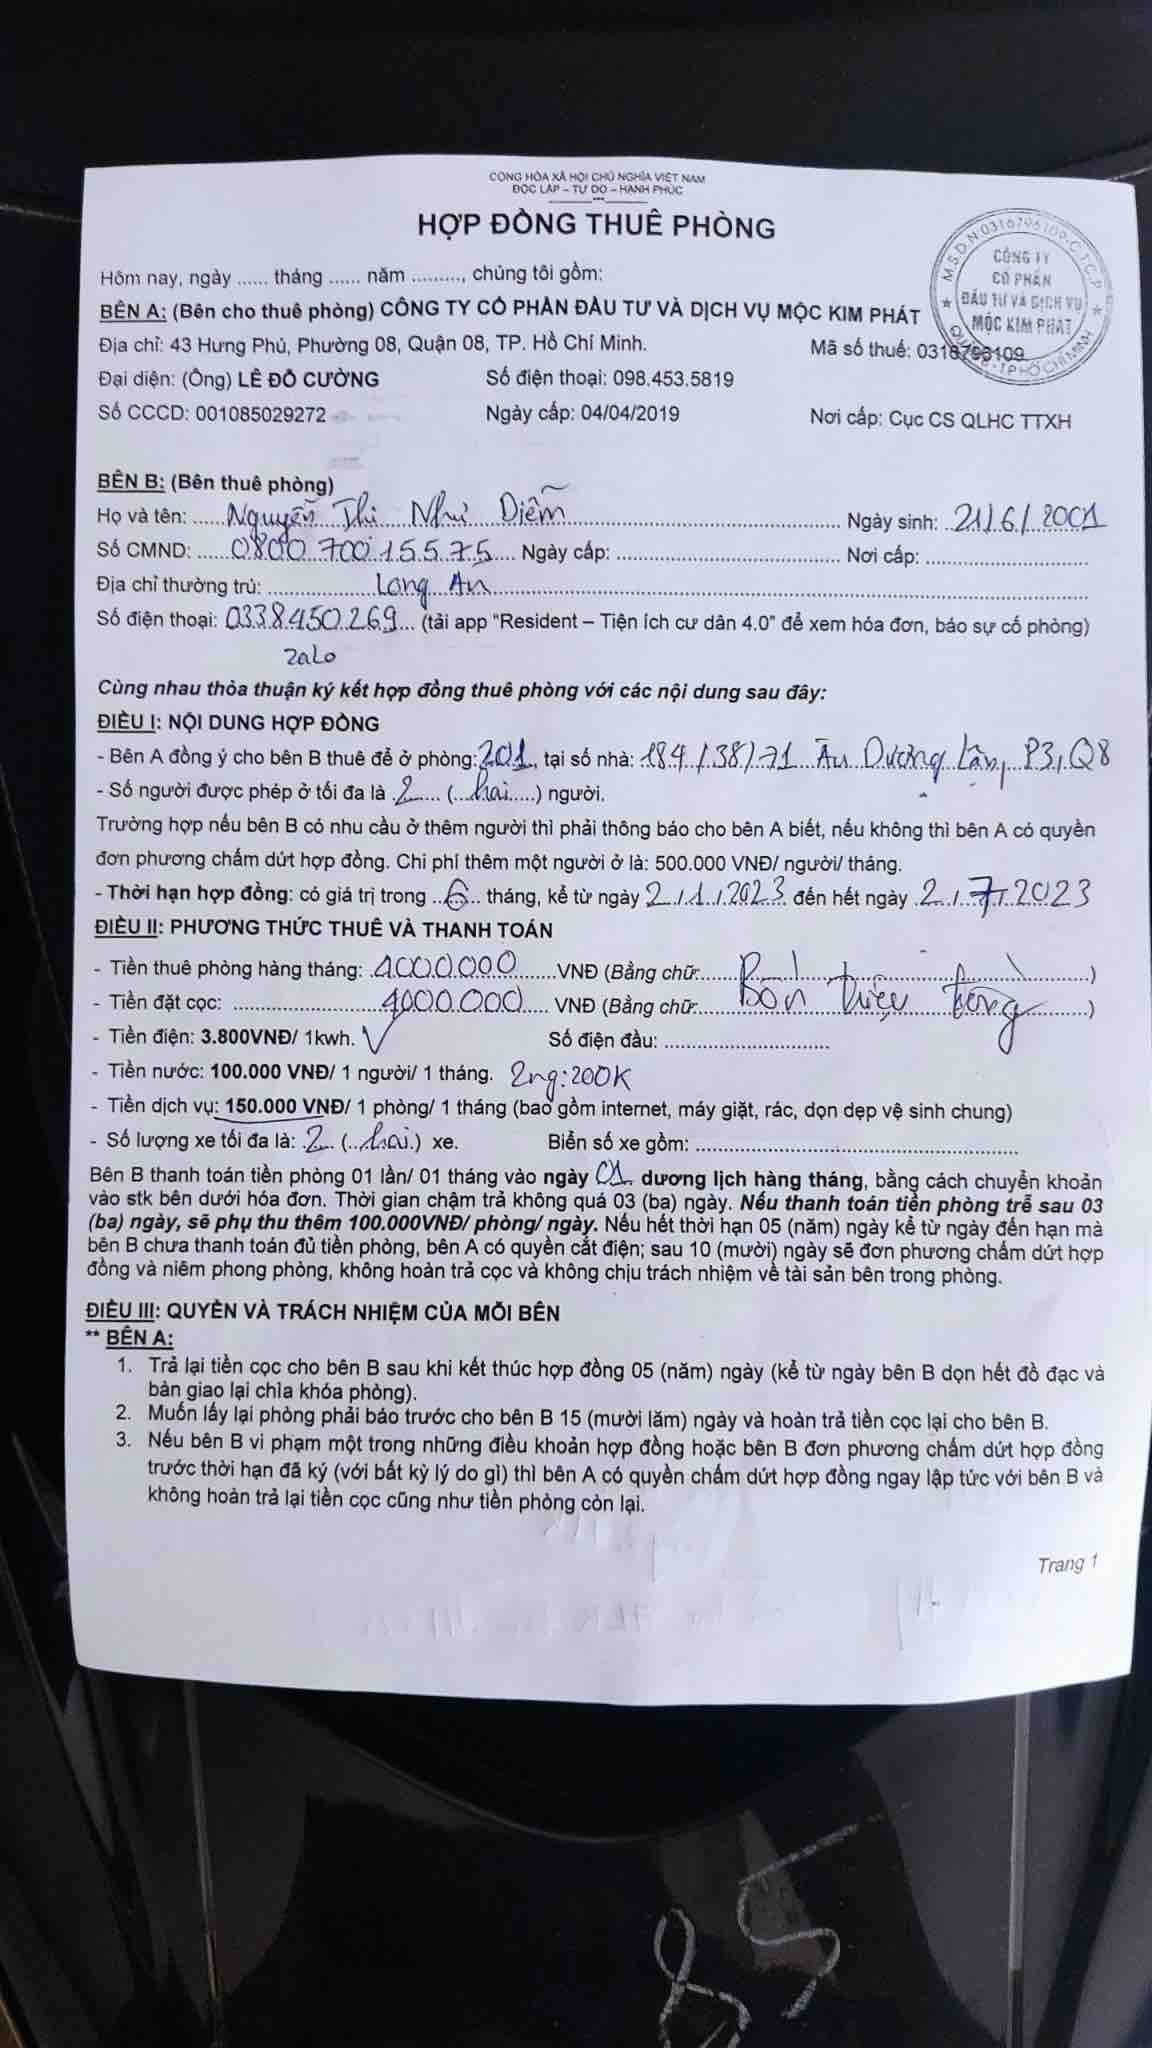 CỘNG HÒA XÃ HỘI CHỦ NGHĨA VIỆT NAM
ĐỘC LẬP – TỰ DO – HẠNH PHÚC
HỢP ĐỒNG THUÊ PHÒNG
M.S.D.N:0316796109-C.T.C.P
CÔNG TY
CỔ PHẦN
ĐẦU TƯ VÀ DỊCH VỤ
MỘC KIM PHÁT
QUẬN 8 - TP HỒ CHÍ MINH
Hôm nay, ngày ...... tháng ...... năm ........., chúng tôi gồm:
BÊN A: (Bên cho thuê phòng) CÔNG TY CỔ PHẦN ĐẦU TƯ VÀ DỊCH VỤ MỘC KIM PHÁT
Địa chỉ: 43 Hưng Phú, Phường 08, Quận 08, TP. Hồ Chí Minh. Mã số thuế: 0316796109
Đại diện: (Ông) LÊ ĐỖ CƯỜNG Số điện thoại: 098.453.5819
Số CCCD: 001085029272 Ngày cấp: 04/04/2019 Nơi cấp: Cục CS QLHC TTXH
BÊN B: (Bên thuê phòng)
Họ và tên: Nguyễn Thị Như Diễm Ngày sinh: 21/6/2001
Số CMND: 080070015575 Ngày cấp: Nơi cấp:
Địa chỉ thường trú: Long An
Số điện thoại: 0338450269 (tải app "Resident – Tiện ích cư dân 4.0" để xem hóa đơn, báo sự cố phòng)
Zalo
Cùng nhau thỏa thuận ký kết hợp đồng thuê phòng với các nội dung sau đây:
ĐIỀU I: NỘI DUNG HỢP ĐỒNG
- Bên A đồng ý cho bên B thuê để ở phòng: 201, tại số nhà: 184/38/71 Âu Dương Lân, P3, Q8
- Số người được phép ở tối đa là 2 (hai) người.
Trường hợp nếu bên B có nhu cầu ở thêm người thì phải thông báo cho bên A biết, nếu không thì bên A có quyền
đơn phương chấm dứt hợp đồng. Chi phí thêm một người ở là: 500.000 VNĐ/ người/ tháng.
- Thời hạn hợp đồng: có giá trị trong 6 tháng, kể từ ngày 2/1/2023 đến hết ngày 2/7/2023
ĐIỀU II: PHƯƠNG THỨC THUÊ VÀ THANH TOÁN
- Tiền thuê phòng hàng tháng: 4000.000 VNĐ (Bằng chữ: )
- Tiền đặt cọc: 4000.000 VNĐ (Bằng chữ: Bốn triệu đồng )
- Tiền điện: 3.800VNĐ/ 1kwh. ✓ Số điện đầu:
- Tiền nước: 100.000 VNĐ/ 1 người/ 1 tháng. 2ng:200K
- Tiền dịch vụ: 150.000 VNĐ/ 1 phòng/ 1 tháng (bao gồm internet, máy giặt, rác, dọn dẹp vệ sinh chung)
- Số lượng xe tối đa là: 2 (hai) xe. Biển số xe gồm:
Bên B thanh toán tiền phòng 01 lần/ 01 tháng vào ngày 01 dương lịch hàng tháng, bằng cách chuyển khoản
vào stk bên dưới hóa đơn. Thời gian chậm trả không quá 03 (ba) ngày. Nếu thanh toán tiền phòng trễ sau 03
(ba) ngày, sẽ phụ thu thêm 100.000VNĐ/ phòng/ ngày. Nếu hết thời hạn 05 (năm) ngày kể từ ngày đến hạn mà
bên B chưa thanh toán đủ tiền phòng, bên A có quyền cắt điện; sau 10 (mười) ngày sẽ đơn phương chấm dứt hợp
đồng và niêm phong phòng, không hoàn trả cọc và không chịu trách nhiệm về tài sản bên trong phòng.
ĐIỀU III: QUYỀN VÀ TRÁCH NHIỆM CỦA MỖI BÊN
** BÊN A:
1. Trả lại tiền cọc cho bên B sau khi kết thúc hợp đồng 05 (năm) ngày (kể từ ngày bên B dọn hết đồ đạc và
bàn giao lại chìa khóa phòng).
2. Muốn lấy lại phòng phải báo trước cho bên B 15 (mười lăm) ngày và hoàn trả tiền cọc lại cho bên B.
3. Nếu bên B vi phạm một trong những điều khoản hợp đồng hoặc bên B đơn phương chấm dứt hợp đồng
trước thời hạn đã ký (với bất kỳ lý do gì) thì bên A có quyền chấm dứt hợp đồng ngay lập tức với bên B và
không hoàn trả lại tiền cọc cũng như tiền phòng còn lại.
Trang 1